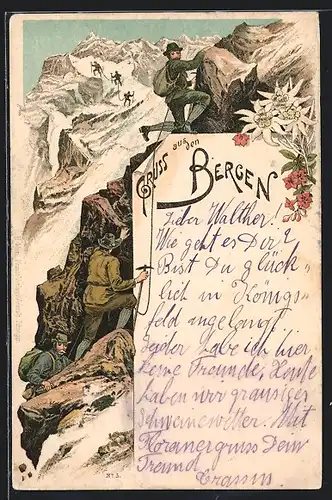 Gruss aus den
Bergen
Lieber Walther!
Wie geht es Dir?
Bist Du glück-
lich in Königs-
feld angelangt?
Leider habe ich hier
keine Freunde. Heute
haben wir grausiges
Schweinewetter. Mit
gruss Dein
Freund
Crassus.